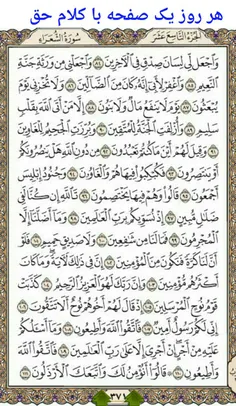 هر روز یک صفحه با کلام حق
الجزء التاسع عشر
سورة الشعراء
واجعل لي لسان صدق في الآخرين ٨٤ واجعلني من ورثة جنة
النعيم ٨٥ واغفر لأبي إنه كان من الضالين ٨٦ ولا تخزني يوم
يبعثون ٨٧ يوم لا ينفع مال ولا بنون ٨٨ إلا من أتى الله بقلب
سليم ٨٩ وأزلفت الجنة للمتقين ٩٠ وبرزت الجحيم للغاوين
٩١ وقيل لهم أين ما كنتم تعبدون ٩٢ من دون الله هل ينصرونكم
أو ينتصرون ٩٣ فكبكبوا فيها هم والغاوون ٩٤ وجنود إبليس
أجمعون ٩٥ قالوا وهم فيها يختصمون ٩٦ تالله إن كنا لفي
ضلال مبين ٩٧ إذ نسويكم برب العالمين ٩٨ وما أضلنا إلا
المجرمون ٩٩ فما لنا من شافعين ١٠٠ ولا صديق حميم ١٠١ فلو
أن لنا كرة فنكون من المؤمنين ١٠٢ إن في ذلك لآية وما كان
أكثرهم مؤمنين ١٠٣ وإن ربك لهو العزيز الرحيم ١٠٤ كذبت
قوم نوح المرسلين ١٠٥ إذ قال لهم أخوهم نوح ألا تتقون ١٠٦
إني لكم رسول أمين ١٠٧ فاتقوا الله وأطيعون ١٠٨ وما أسألكم
عليه من أجر إن أجري إلا على رب العالمين ١٠٩ فاتقوا الله
وأطيعون ١١٠ قالوا أنؤمن لك واتبعك الأرذلون ١١١
٣٧١